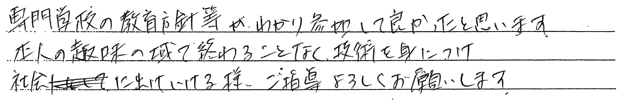 専門学校の教育方針等がわかり参加して良かったと思います
本人の趣味の域で終わることなく技術を身につけ
社会に出ていける様、ご指導よろしくお願いします